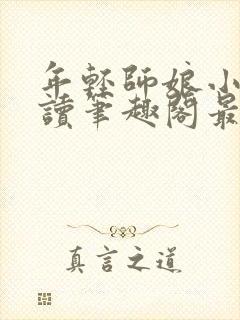 年輕師娘小
讀筆趣閣最
真言之道